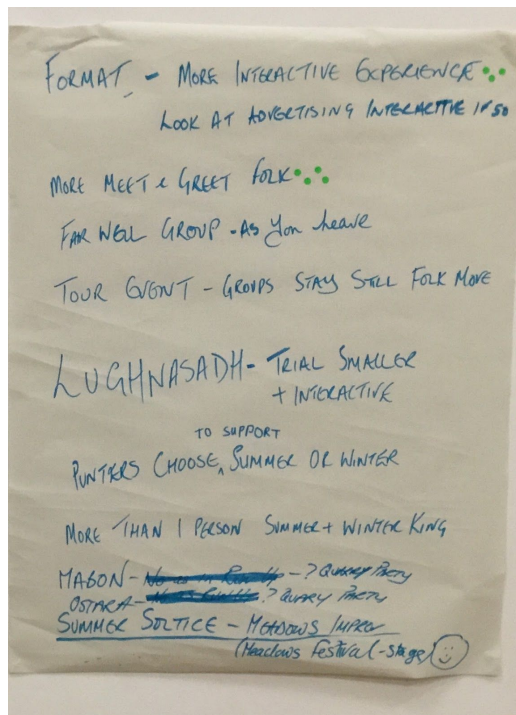 FORMAT - MORE INTERACTIVE EXPERIENCE
LOOK AT ADVERTISING INTERACTIVE IF SO
MORE MEET & GREET FOLK
FAIR WELL GROUP - AS YOU LEAVE
TOUR EVENT - GROUPS STAY STILL FOLK MOVE
LUGHNASADH - TRIAL SMALLER
+ INTERACTIVE
TO SUPPORT
PUNTERS CHOOSE ^ SUMMER OR WINTER
MORE THAN 1 PERSON SUMMER + WINTER KING
MABON - - ? QUARRY PARTY
OSTARA - ? QUARRY PARTY
SUMMER SOLTICE - MEADOWS IMPROV
(Meadows Festival - stage)